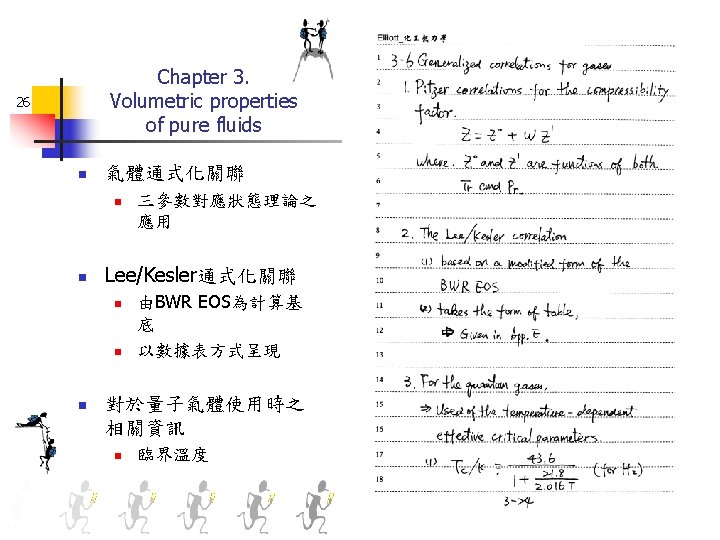 26
Chapter 3.
Volumetric properties
of pure fluids
氣體通式化關聯
三參數對應狀態理論之
應用
Lee/Kesler通式化關聯
由BWR EOS為計算基
底
以數據表方式呈現
對於量子氣體使用時之
相關資訊
臨界溫度
Elliott_化工熱力學
1 3-6 Generalized correlations for gases
2 1. Pitzer correlations for the compressibility
3 factor.
4 Z = Z° + ω Z'
5 where. Z° and Z' are functions of both
6 Tr and Pr.
7
8 2. The Lee/Kesler correlation
9 (1) based on a modified form of the
10 BWR EOS
11 (2) takes the form of table,
12 ⇒ Given in App. E.
13
14 3. For the quantum gases,
15 ⇒ Used of the temperature-dependent
16 effective critical parameters
17 (1) Tc/K = 43.6 / (1 + 21.8 / 2.016 T) (for H2)
18
3->4